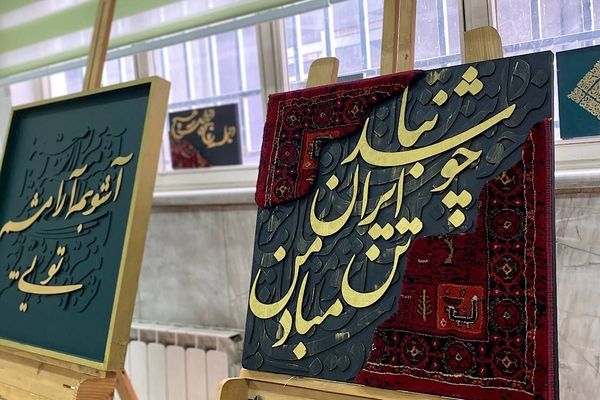 آشوبم آرامشم
تویی
چو ایران نباشد
تن من مباد